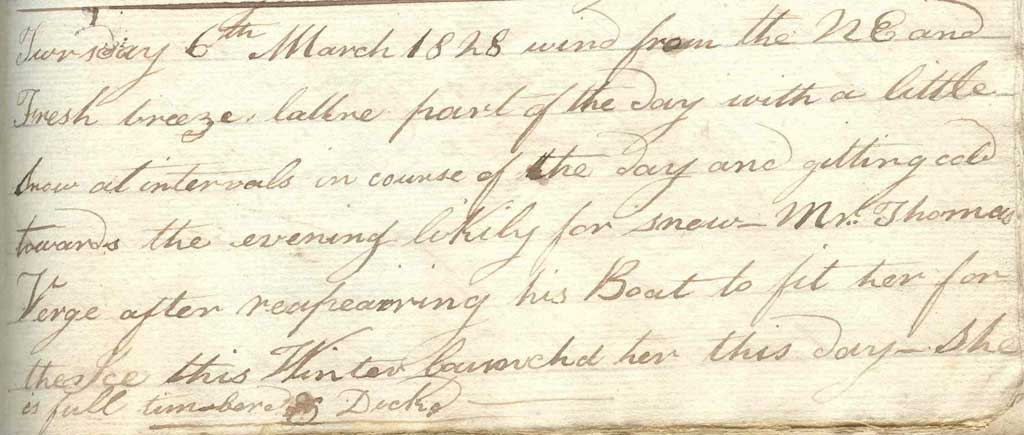 Tuirsday 6th March 1828 wind from the NE and
Fresh breeze lattre part of the day with a little
snow at intervals in course of the day and gitting cold
towards the evening likily for snow - Mr: Thomas
Verge after reapearring his Boat to fit her for
the Ice this Winter launchd her this day - She
is full timbered & Deckd